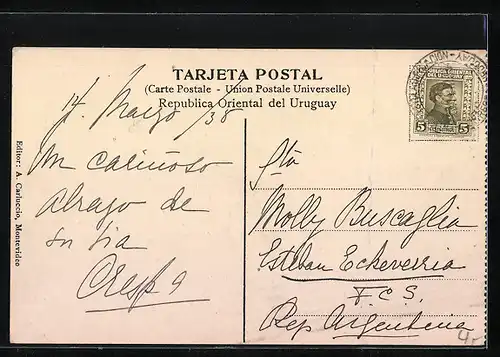 TARJETA POSTAL
(Carte Postale - Union Postale Universelle)
Republica Oriental del Uruguay
14 Marzo /38
Un cariñoso
abrazo de
su tia
Editor: A. Carluccio, Montevideo
5 5
Sta
Molly Buscaglia
Esteban Echeverria
F.C.S.
Rep Argentina